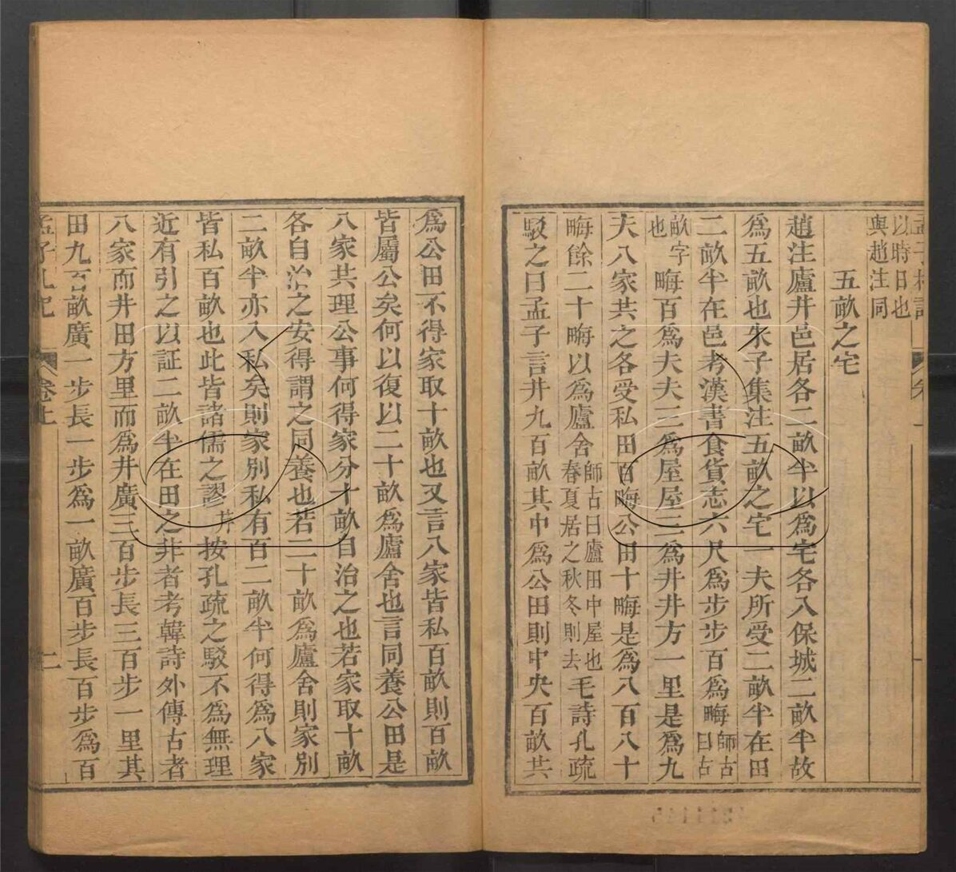 以時日也
與趙注同
五畝之宅
趙注廬井邑居各二畝半以爲宅各入保城二畝半故
爲五畝也朱子集注五畝之宅一夫所受二畝半在田
二畝半在邑考漢書食貨志六尺爲步步百爲畮師古曰古
畝字也畮百爲夫夫三爲屋屋三爲井井方一里是爲九
夫八家共之各受私田百畮公田十畮是爲八百八十
畮餘二十畮以爲廬舍師古曰廬田中屋也春夏居之秋冬則去毛詩孔疏
駁之曰孟子言井九百畝其中爲公田則中央百畝共
爲公田不得家取十畝也又言八家皆私百畝則百畝
皆屬公矣何以復以二十畝爲廬舍也言同養公田是
八家共理公事何得家分十畝自治之也若家取十畝
各自治之安得謂之同養也若二十畝爲廬舍則家別
二畝半亦入私矣則家別私有百二畝半何得爲八家
皆私百畝也此皆諸儒之謬
按孔疏之駁不爲無理
近有引之以証二畝半在田之非者考韓詩外傳古者
八家而井田方里而爲井廣三百步長三百步一里其
田九百畝廣一步長一步爲一畝廣百步長百步爲百
卷上
二